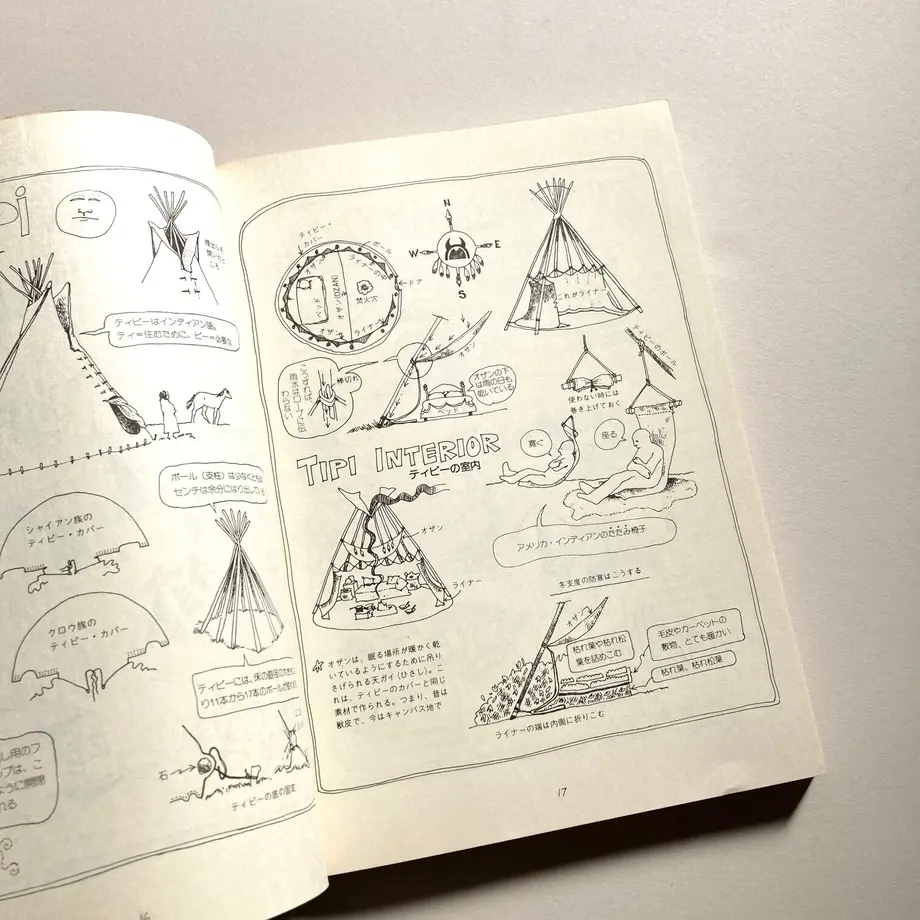 pi
煙出しを
開いたと
ころ
ティピーはインディアン語。
ティ=住むために、ピー=必要な
ポール(支柱)は少なくとも
センチは余分にはり出している
シャイアン族の
ティピー・カバー
クロウ族の
ティピー・カバー
ティピーには、床の直径の大
り11本から17本のポールが
し用のフ
ップは、こ
ように開閉
れる
石→
ティピーの裾の固定
16
ティピー・
カバー
ポール
オザン
ライナーの中
ドア
ベッド
オザン(OZAN)
焚火穴
オザン
ライナー
N
W
E
S
これがライナー
オザン
こうすれば、
雨水はロープを伝
わらない
棒切れ
ベッド
オザンの下
は雨の日も
乾いている
ティピーのポール
使わない時には
巻き上げておく
寛ぐ
座る
TIPI INTERIOR
ティピーの室内
アメリカ・インディアンのたたみ椅子
オザン
ライナー
冬支度の防寒はこうする
オザン
枯れ葉や枯れ松
葉を詰めこむ
毛皮やカーペットの
敷物、とても暖かい
枯れ葉、枯れ松葉
ライナーの端は内側に折りこむ
☆オザンは、眠る場所が暖かく乾
いているようにするために吊り
さげられる天ガイ(ひさし)。こ
れは、ティピーのカバーと同じ
素材で作られる。つまり、昔は
獣皮で、今はキャンバス地で
17